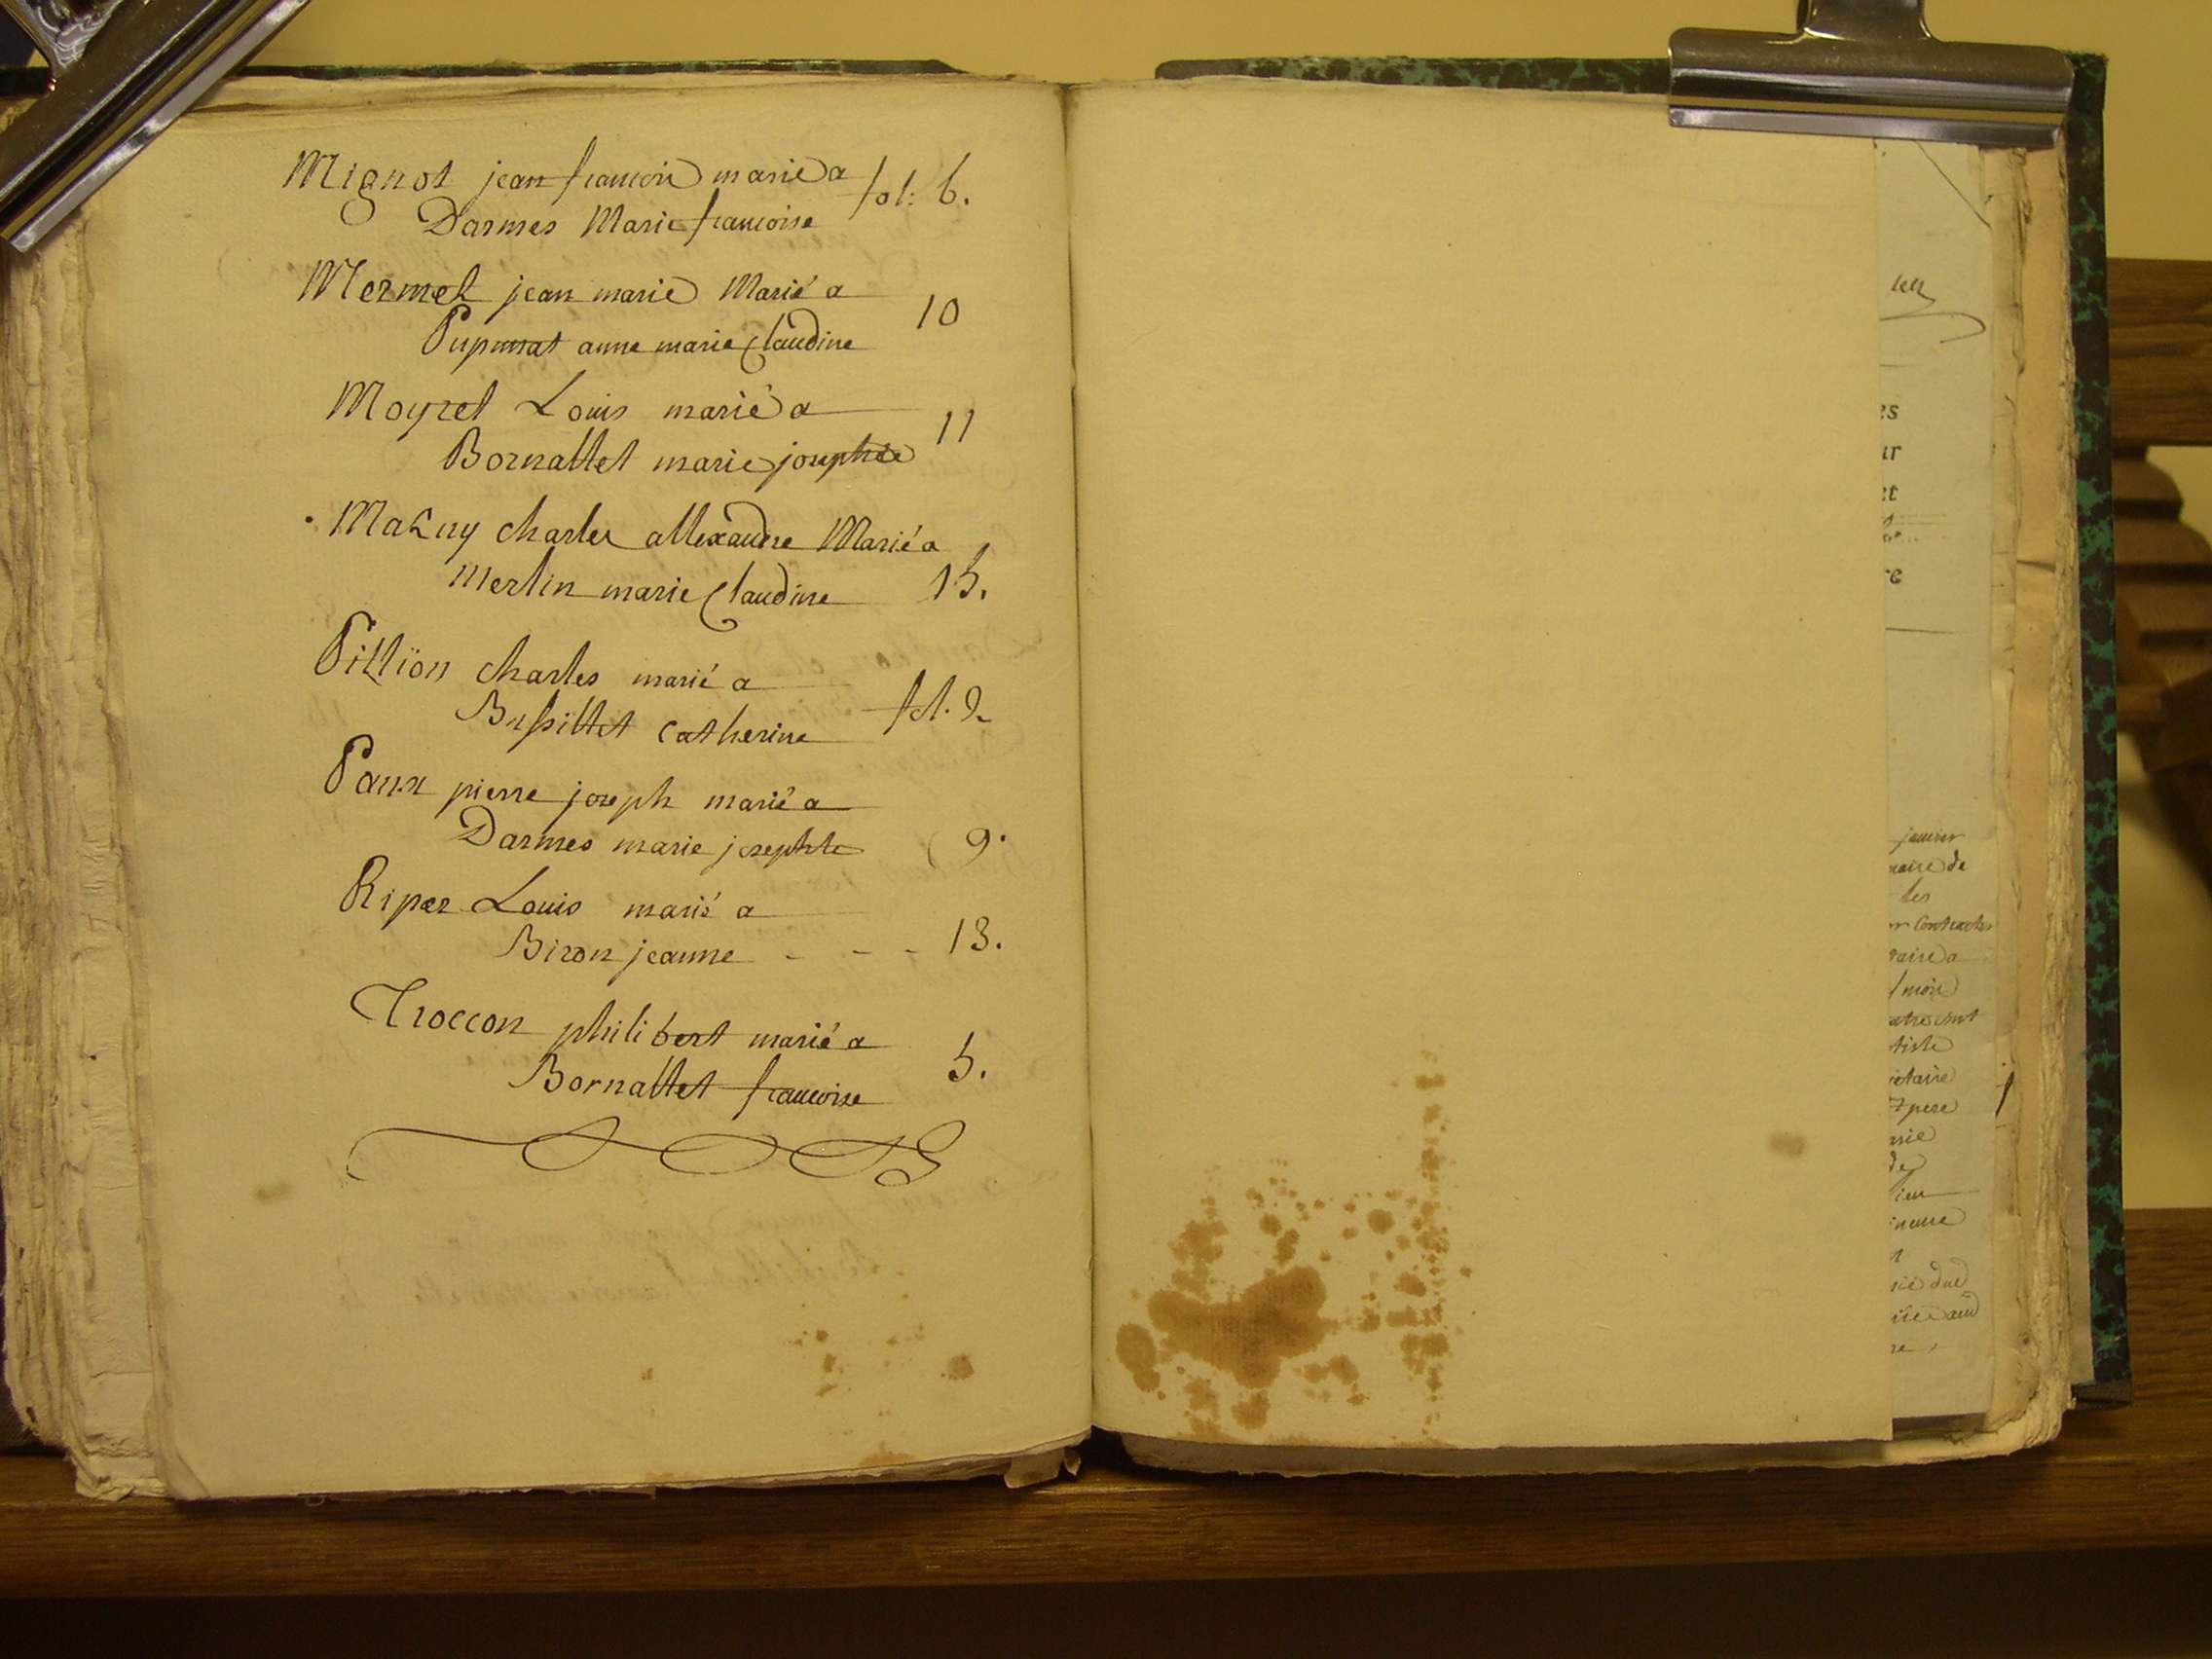 Mignot jean francois marie a fol: 6.
Darmes Marie francoise
Mermet jean marie Marié a 10
Pupunat anne marie Claudine
Moyret Louis marié a 11
Bornattet marie josephte
Matny charles allexandre Marié a
Merlin marie Claudine 15.
Pillion charles marié a
Bussillet Catherine fol. 2
Paux pierre joseph marié a
Darmes marie josephte 9.
Riper Louis marié a
Biron jeanne - - - 13.
Troccon philibert marié a
Bornattet francoise 5.
es
ur
et
re
janvier
maire de
les
contractes
pere